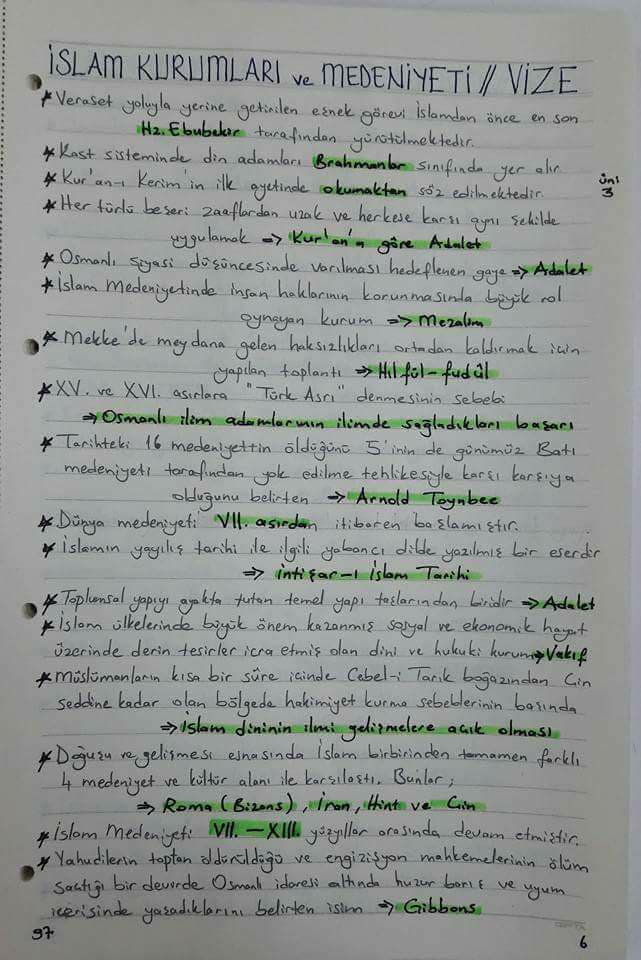 İSLAM KURUMLARI ve MEDENİYETİ // VİZE
* Veraset yoluyla yerine getirilen eşnek görevi İslamdan önce en son
Hz. Ebubekir tarafından yürütülmektedir.
* Kast sisteminde din adamları Brahmanlar sınıfında yer alır.
* Kur'an-ı Kerim'in ilk ayetinde okumaktan söz edilmektedir.
üni
3
* Her türlü beşeri zaaflardan uzak ve herkese karşı aynı şekilde
uygulamak => Kur'an'a göre Adalet
* Osmanlı siyasi düşüncesinde varılması hedeflenen gaye => Adalet
* İslam Medeniyetinde insan haklarının korunmasında büyük rol
oynayan kurum => Mezalim
* Mekke'de meydana gelen haksızlıkları ortadan kaldırmak için
yapılan toplantı => Hılfül-fudûl
* XV. ve XVI. asırlara "Türk Asrı" denmesinin sebebi
=> Osmanlı ilim adamlarının ilimde sağladıkları başarı
* Tarihteki 16 medeniyettin öldüğünü 5'inin de günümüz Batı
medeniyeti tarafından yok edilme tehlikesiyle karşı karşıya
olduğunu belirten => Arnold Toynbee
* Dünya medeniyeti VII. asırdan itibaren başlamıştır.
* İslamın yayılış tarihi ile ilgili yabancı dilde yazılmış bir eserdir
=> İntişar-ı İslam Tarihi
* Toplumsal yapıyı ayakta tutan temel yapı taşlarından biridir => Adalet
* İslam ülkelerinde büyük önem kazanmış sosyal ve ekonomik hayat
üzerinde derin tesirler icra etmiş olan dini ve hukuki kurum => Vakıf
* Müslümanların kısa bir süre içinde Cebel-i Tarık boğazından Çin
seddine kadar olan bölgede hakimiyet kurma sebeblerinin başında
=> İslam dininin ilmi gelişmelere açık olması
* Doğuşu ve gelişmesi esnasında İslam birbirinden tamamen farklı
4 medeniyet ve kültür alanı ile karşılaştı. Bunlar;
=> Roma (Bizans), İran, Hint ve Çin
* İslam Medeniyeti VII. - XIII. yüzyıllar arasında devam etmiştir.
* Yahudilerin toptan öldürüldüğü ve engizisyon mahkemelerinin ölüm
saçtığı bir devirde Osmanlı idaresi altında huzur barış ve uyum
içerisinde yaşadıklarını belirten isim => Gibbons
97
6